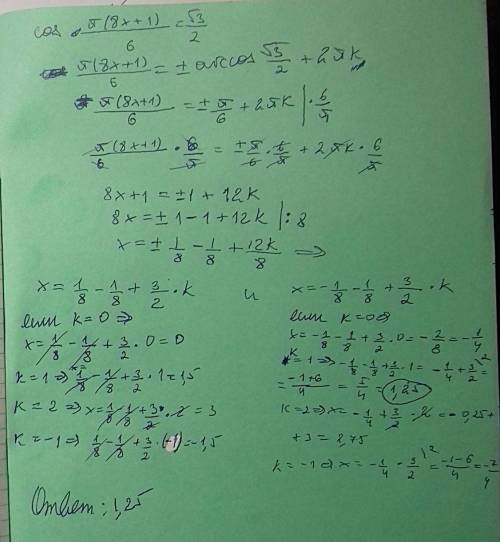 cos π(8x+1)/6 = √3/2
π(8x+1)/6 = ± arccos √3/2 + 2πk
π(8x+1)/6 = ± π/6 + 2πk | · 6/π
π(8x+1)/6 · 6/π = ±π/6 · 6/π + 2πk · 6/π
8x+1 = ±1 + 12k
8x = ±1 - 1 + 12k | :8
x = ± 1/8 - 1/8 + 12k/8 =>
x = 1/8 - 1/8 + 3/2 · k
если k=0 =>
x = 1/8 - 1/8 + 3/2 · 0 = 0
k=1 => x= 1/8 - 1/8 + 3/2 · 1 = 1,5
k=2 => x = 1/8 - 1/8 + 3/2 · 2 = 3
k=-1 => 1/8 - 1/8 + 3/2 · (-1) = -1,5
и
x = -1/8 - 1/8 + 3/2 · k
если k=0
x = -1/8 - 1/8 + 3/2 · 0 = -2/8 = -1/4
k=1 => -1/8 - 1/8 + 3/2 · 1 = -1/4 + 3/2 =
= -1+6/4 = 5/4 = 1,25
k=2 => x = -1/4 + 3/2 · 2 = -0,25+
+3 = 2,75
k=-1 => x = -1/4 - 3/2 = -1-6/4 = -7/4
Ответ: 1,25